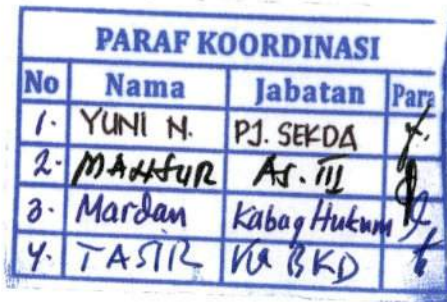 PARAF KOORDINASI
No Nama Jabatan Para
1. YUNI N. PJ. SEKDA
2. MAHSUR AS. III
3. Mardan Kabag Hukum
4. TASIR BKD